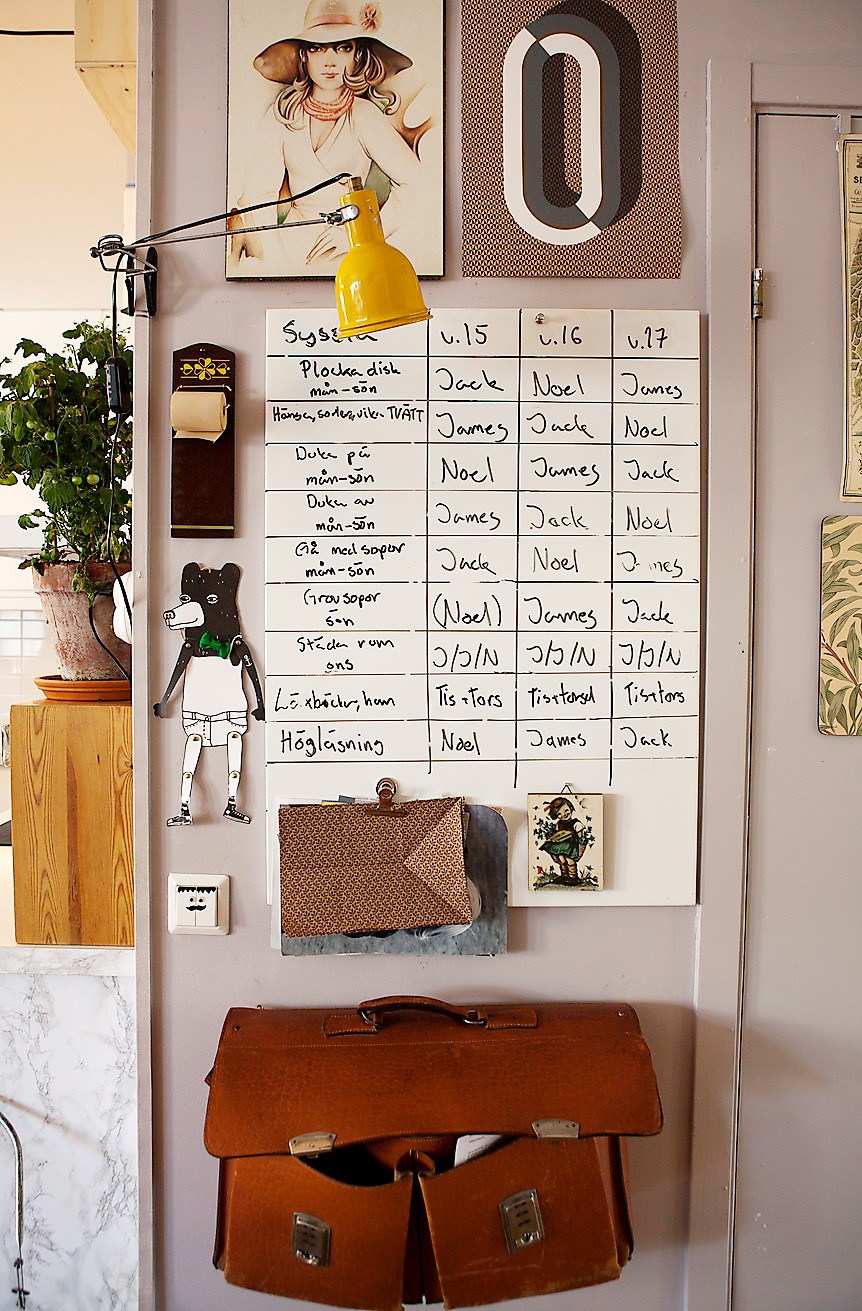 v.15 v.16 v.17
Plocka disk
mån-sön Jack Noel James
Hänga, sortera, vika TVÄTT James Jack Noel
Duka på
mån-sön Noel James Jack
Duka av
mån-sön James Jack Noel
Gå med sopor
mån-sön Jack Noel James
Grovsopor
sön (Noel) James Jack
Städa rum
ons J/J/N J/J/N J/J/N
Läxböcker, hem Tis+tors Tis+torsd Tis+tors
Högläsning Noel James Jack